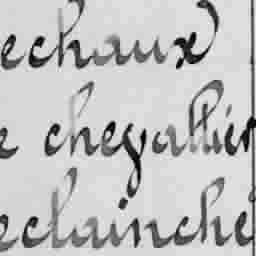 echaux
e chevallier
eclainche